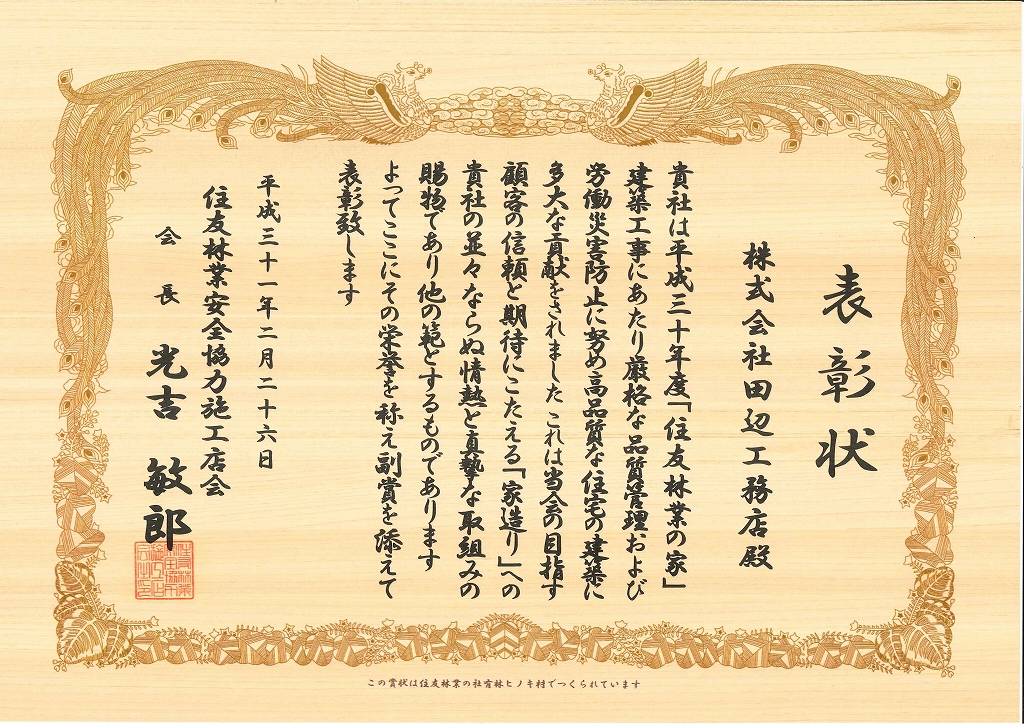 表彰状
株式会社田辺工務店殿
貴社は平成三十年度「住友林業の家」
建築工事にあたり厳格な品質管理および
労働災害防止に努め高品質な住宅の建築に
多大な貢献をされました これは当会の目指す
顧客の信頼と期待にこたえる「家造り」への
貴社の並々ならぬ情熱と真摯な取組みの
賜物であり他の範とするものであります
よってここにその栄誉を称え副賞を添えて
表彰致します
平成三十一年二月二十六日
住友林業安全協力施工店会
会長 光吉敏郎
この賞状は住友林業の社有林ヒノキ材でつくられています